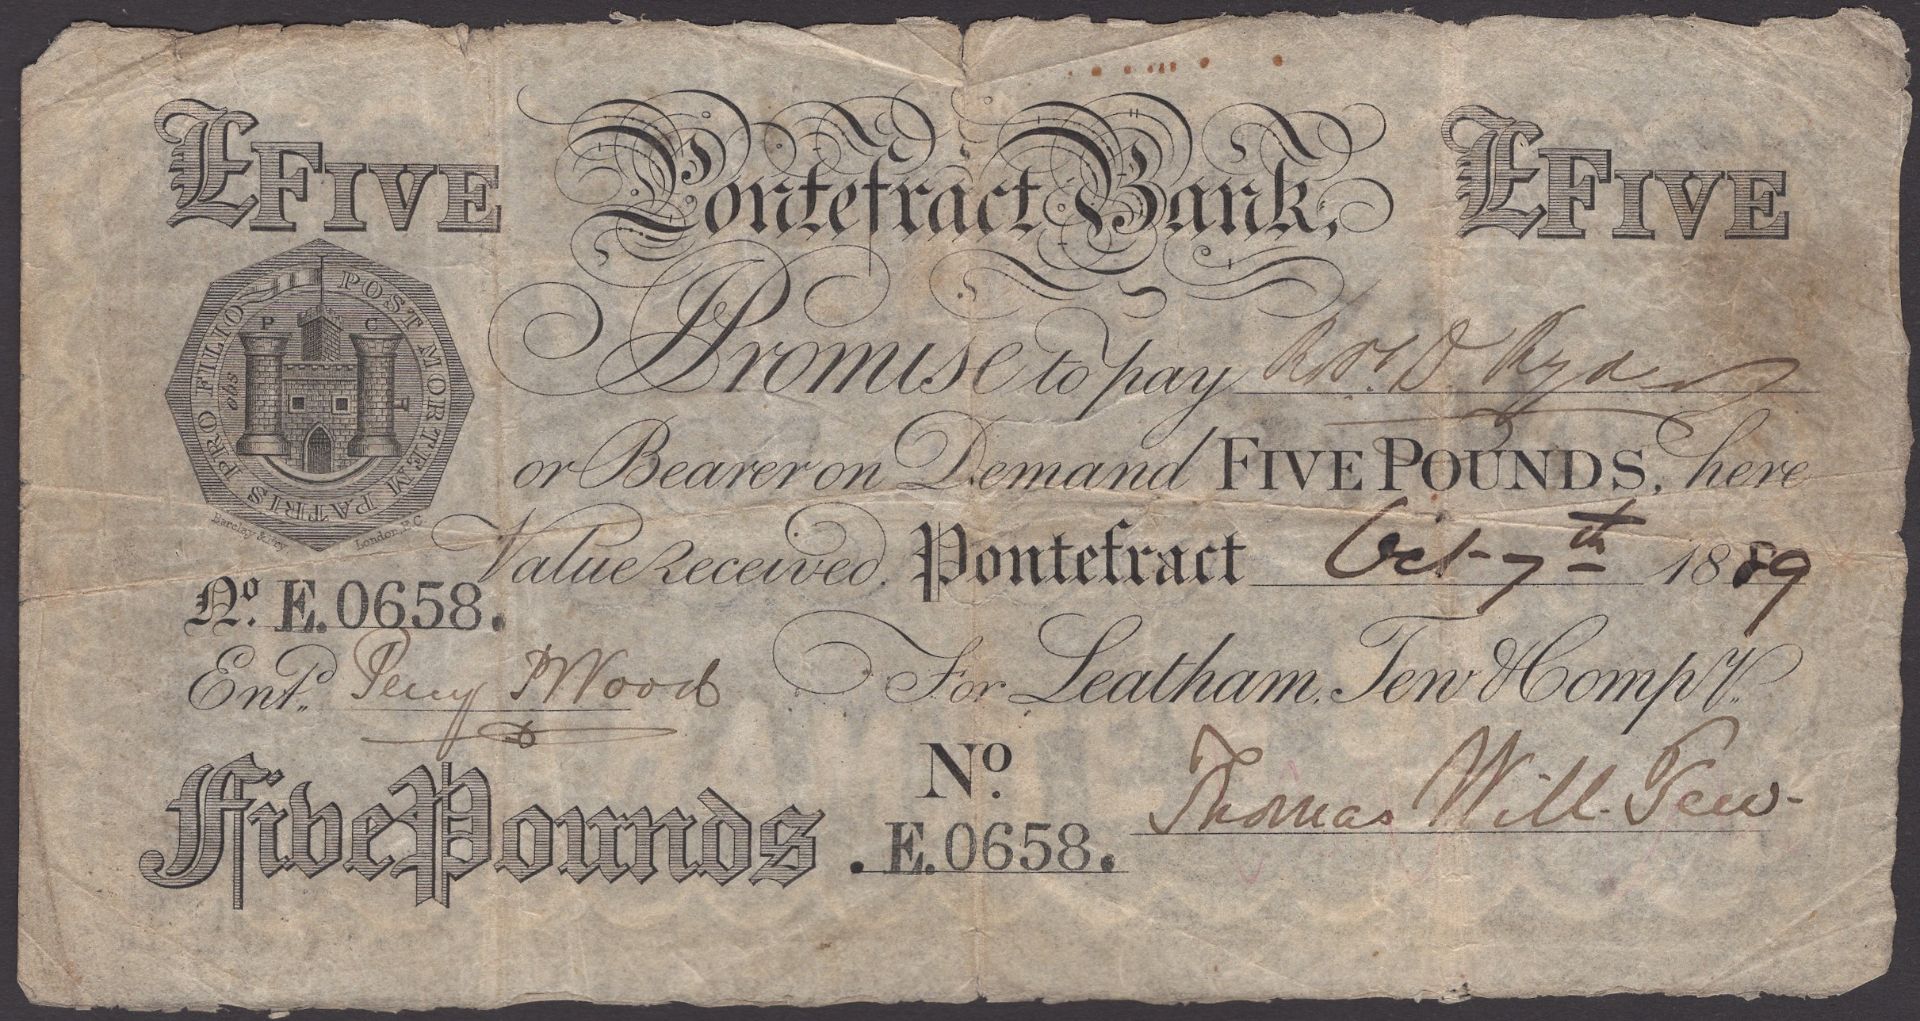 £FIVE Pontefract Bank, £FIVE
POST MORTEM PATRIS PRO FILIO
P C
OBS
Promise to pay Robt. D. Ryder
or Bearer on Demand FIVE POUNDS, here
Barclay & Fry London, E.C.
Value received. Pontefract Oct 7th 1889
No. E.0658.
Entd. Percy P Wood For Leatham, Tew & Compy.
Five Pounds No Thomas Will. Tew
.E.0658.